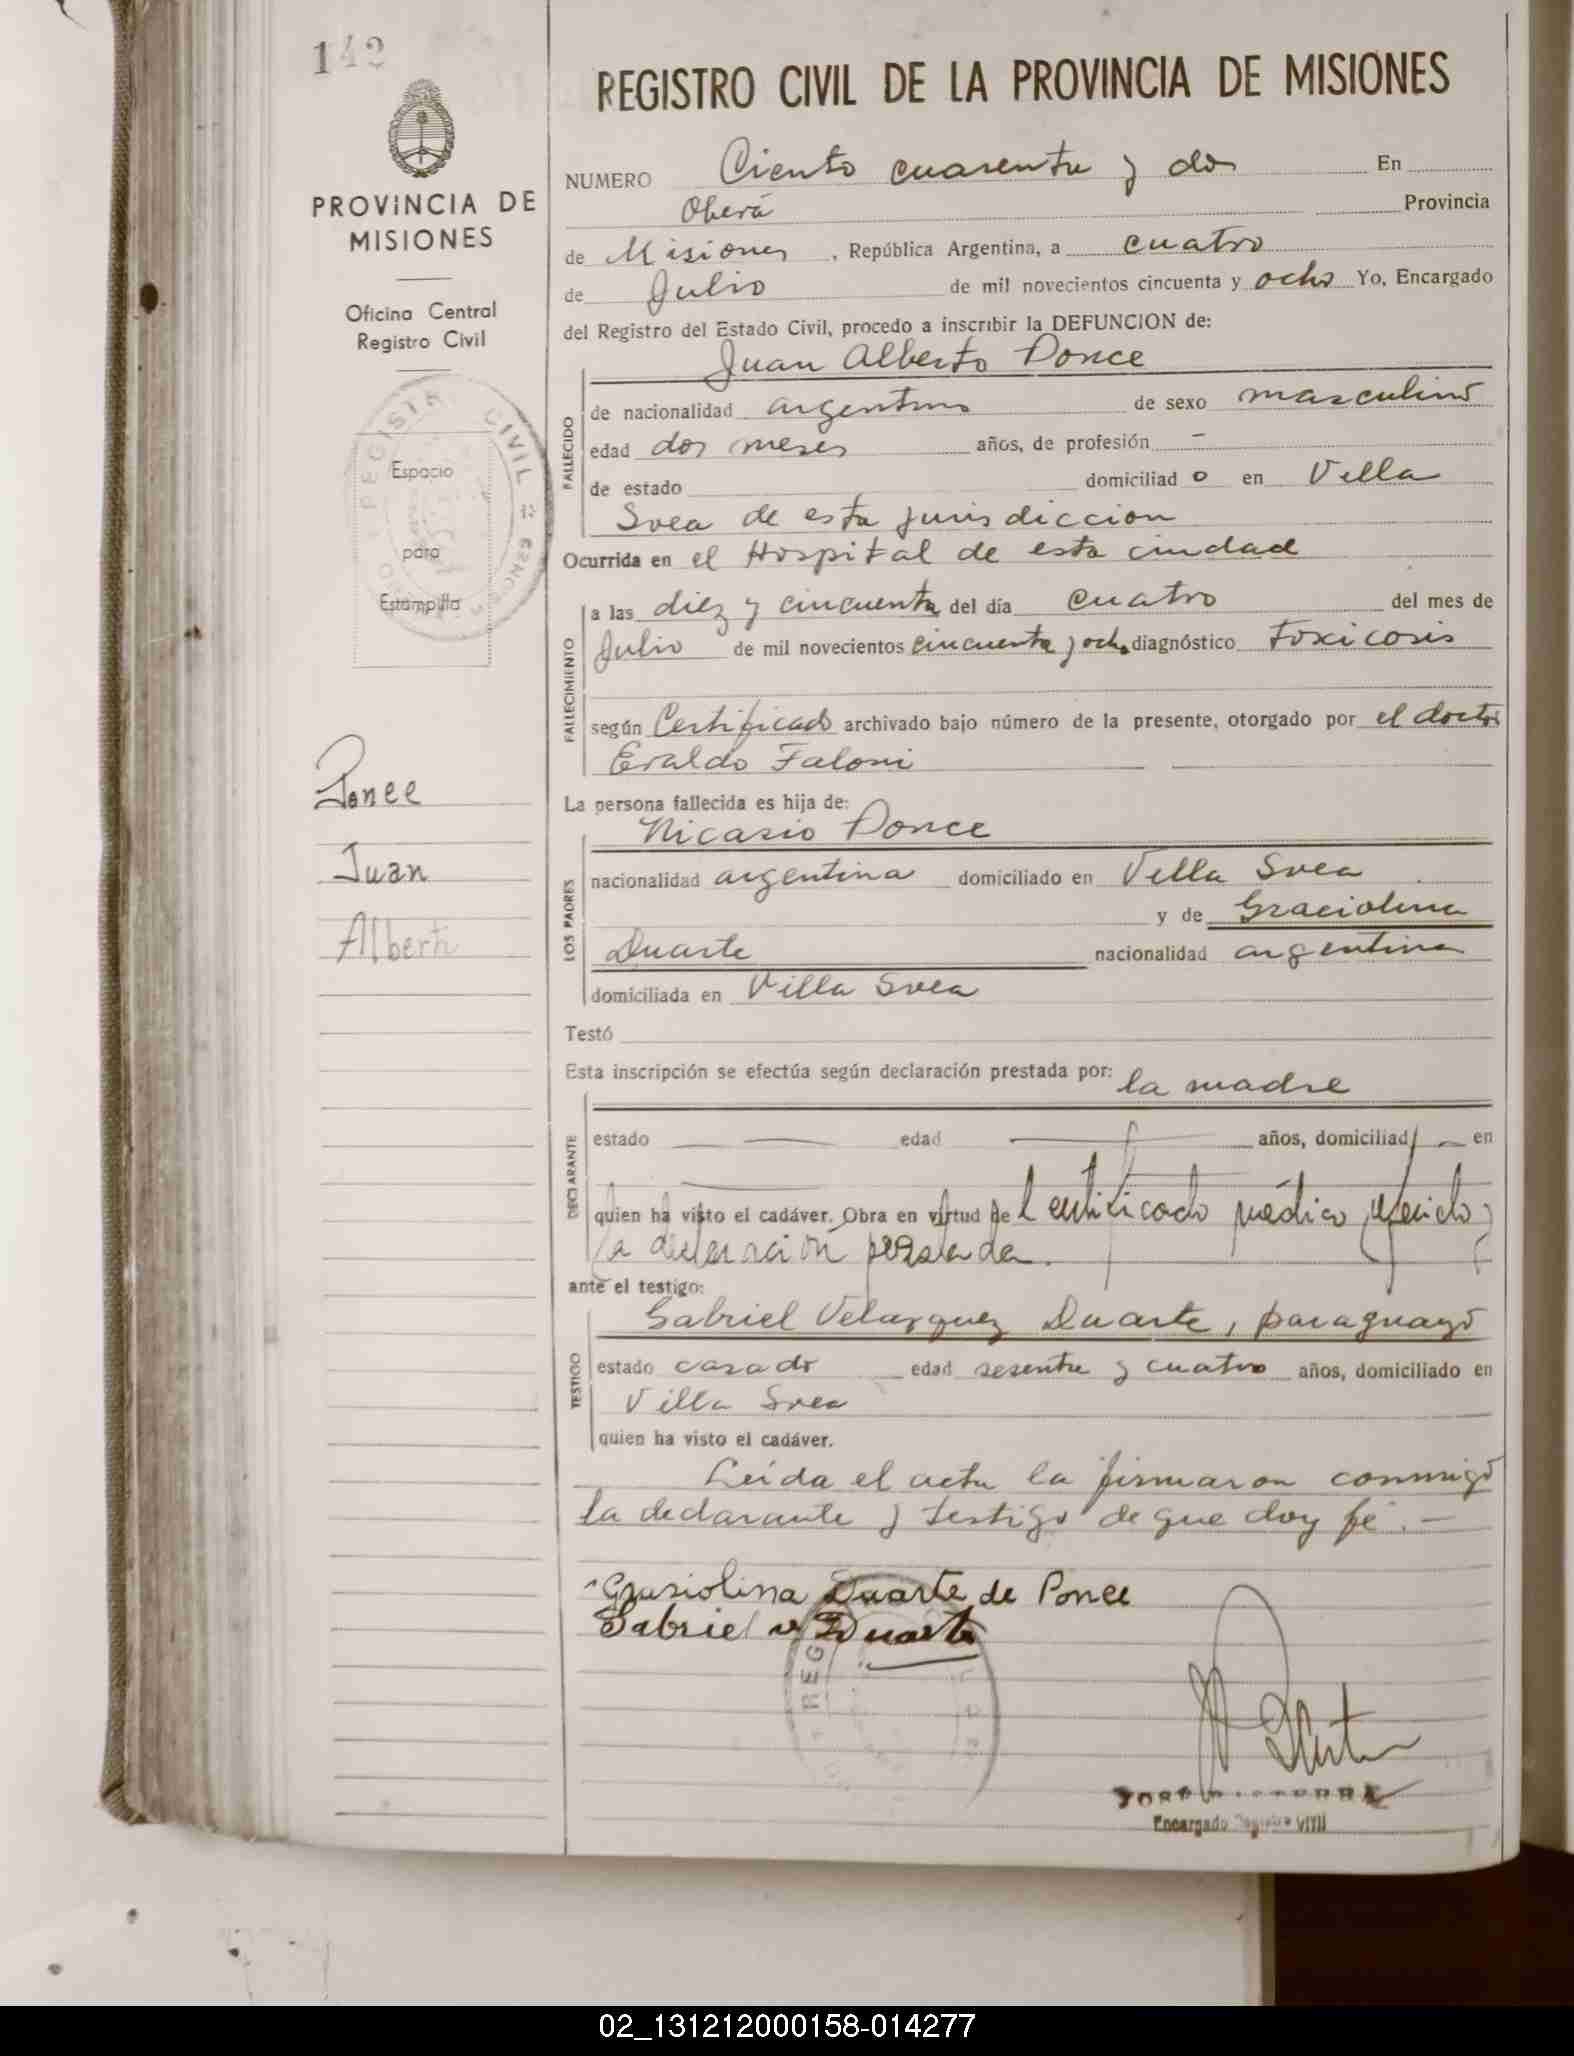 142
PROVINCIA DE
MISIONES
Oficina Central
Registro Civil
REGISTRO CIVIL
Espacio
para
Estampilla
Ponce
Juan
Alberto
REGISTRO CIVIL DE LA PROVINCIA DE MISIONES
NUMERO Ciento cuarenta y dos En
Oberá Provincia
de Misiones, República Argentina, a cuatro
de Julio de mil novecientos cincuenta y ocho Yo, Encargado
del Registro del Estado Civil, procedo a inscribir la DEFUNCION de:
Juan Alberto Ponce
FALLECIDO
de nacionalidad argentino de sexo masculino
edad dos meses años, de profesión -
de estado domiciliado en Villa
Svea de esta jurisdiccion
Ocurrida en el Hospital de esta ciudad
FALLECIMIENTO
a las diez y cincuenta del día cuatro del mes de
Julio de mil novecientos cincuenta y ocho diagnóstico Toxicosis
según Certificado archivado bajo número de la presente, otorgado por el doctor
Eraldo Faloni
La persona fallecida es hija de:
Nicasio Ponce
LOS PADRES
nacionalidad argentina domiciliado en Villa Svea
y de Graciolina
Duarte nacionalidad argentina
domiciliada en Villa Svea
Testó
Esta inscripción se efectúa según declaración prestada por: la madre
DECLARANTE
estado — edad — años, domiciliad — en
quien ha visto el cadáver. Obra en virtud del certificado médico referido y
la declaración prestada.
ante el testigo:
Gabriel Velazquez Duarte, paraguayo
TESTIGO
estado casado edad sesenta y cuatro años, domiciliado en
Villa Svea
quien ha visto el cadáver.
Leída el acta la firmaron conmigo
la declarante y testigo de que doy fé. —
Grasiolina Duarte de Ponce
Gabriel v Duarte
Encargado Registro Civil
02_131212000158-014277